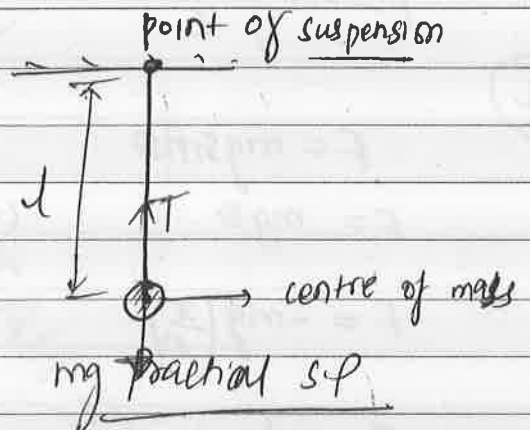 point of suspension
F = mg sinθ
l
T
centre of mass
mg practical SP